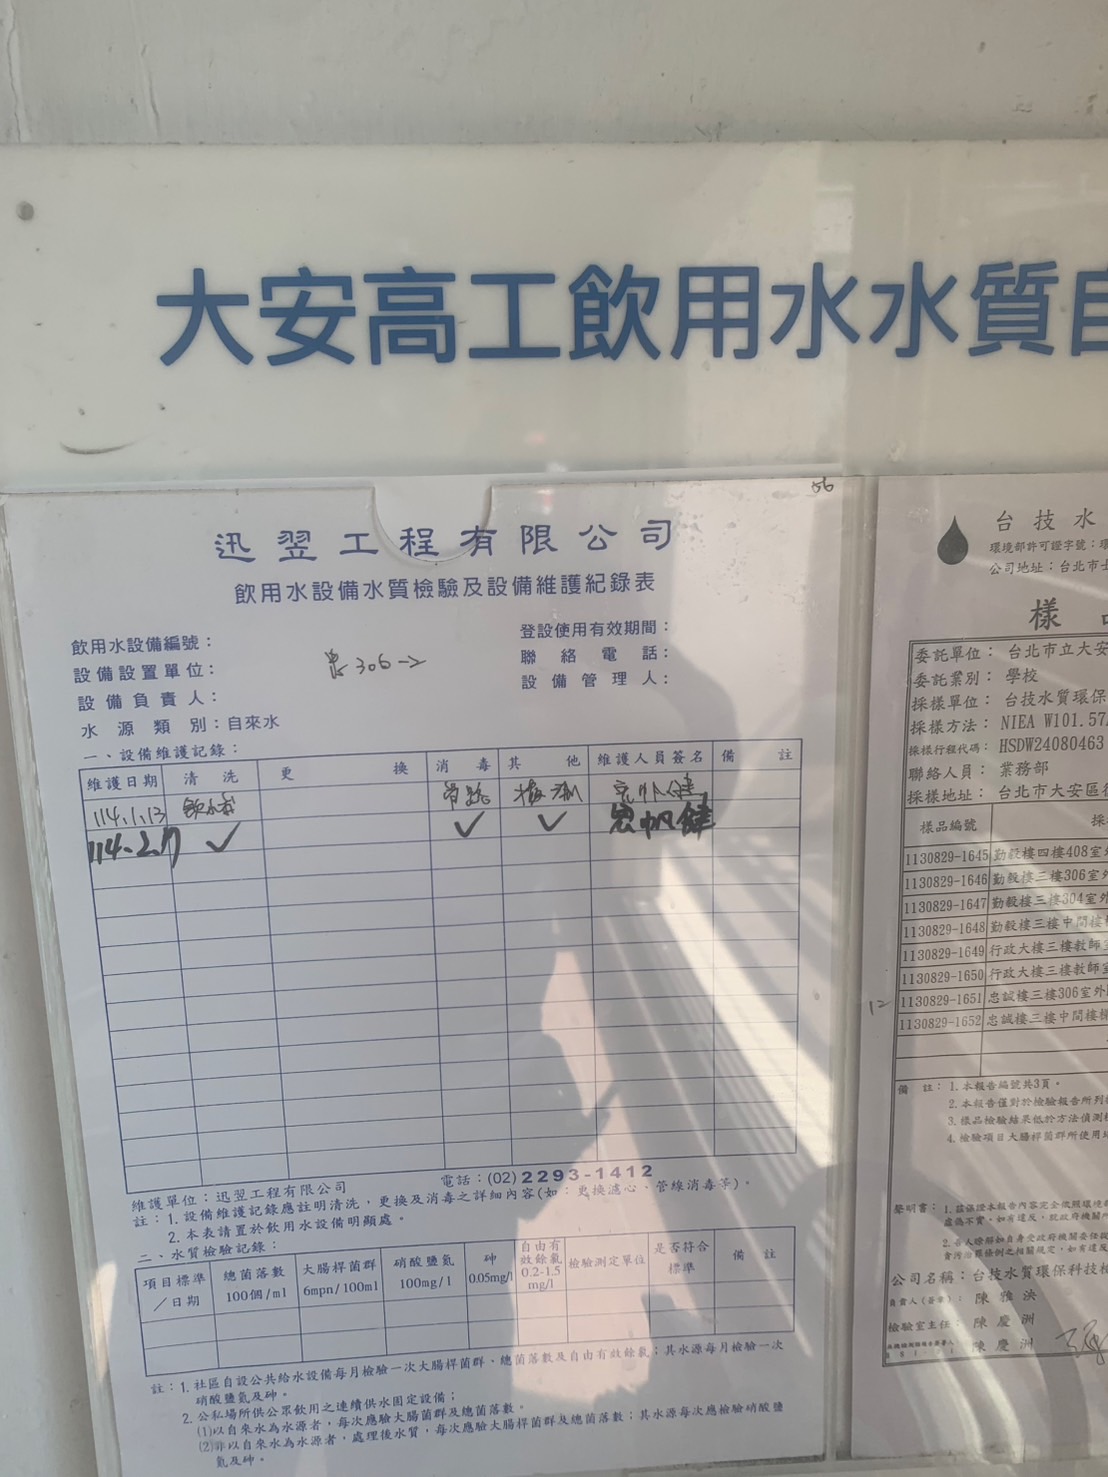 大安高工飲用水水質自
56
迅翌工程有限公司
飲用水設備水質檢驗及設備維護紀錄表
飲用水設備編號：
設備設置單位：
忠306-2
設備負責人：
水源類別：自來水
登設使用有效期間：
聯絡電話：
設備管理人：
一、設備維護記錄：
維護日期 清洗 更換 消毒 其他 維護人員簽名 備註
114.1.13 飲水機 管路
114.2.17 ✓ ✓ ✓
維護單位：迅翌工程有限公司 電話：(02)2293-1412
註：1.設備維護記錄應註明清洗、更換及消毒之詳細內容(如：更換濾心、管線消毒等)。
2.本表請置於飲用水設備明顯處。
二、水質檢驗記錄：
項目標準／日期 總菌落數100個/ml 大腸桿菌群6mpn/100ml 硝酸鹽氮100mg/l 砷0.05mg/l 自由有效餘氯0.2-1.5mg/l 檢驗測定單位 是否符合標準 備註
註：1.社區自設公共給水設備每月檢驗一次大腸桿菌群、總菌落數及自由有效餘氯；其水源每月檢驗一次
硝酸鹽氮及砷。
2.公私場所供公眾飲用之連續供水固定設備；
(1)以自來水為水源者，每次應驗大腸菌群及總菌落數。
(2)非以自來水為水源者，處理後水質，每次應驗大腸桿菌群及總菌落數；其水源每次應檢驗硝酸鹽
氮及砷。
台技水
環境部許可證字號：環
公司地址：台北市士
樣
委託單位：台北市立大安
委託業別：學校
採樣單位：台技水質環保
採樣方法：NIEA W101.57
採樣行程代碼：HSDW24080463
聯絡人員：業務部
採樣地址：台北市大安區復
樣品編號 採
1130829-1645 勤毅樓四樓408室外
1130829-1646 勤毅樓三樓306室外
1130829-1647 勤毅樓三樓304室外
1130829-1648 勤毅樓三樓中間樓梯
1130829-1649 行政大樓三樓教師室
1130829-1650 行政大樓三樓教師室
12
1130829-1651 忠誠樓三樓306室外
1130829-1652 忠誠樓三樓中間樓梯
備註：1.本報告編號共3頁。
2.本報告僅對於檢驗報告所列
3.樣品檢驗結果低於方法偵測
4.檢驗項目大腸桿菌群所使用培
聲明書：1.茲保證本報告內容完全依照環境部
虛偽不實，如有違反，就政府機關所
2.吾人瞭解如自身受政府機關委任從
貪污治罪條例之相關規定，如有違反
公司名稱：台技水質環保科技
負責人(簽章)：陳雅泱
檢驗室主任：陳慶洲
陳慶洲